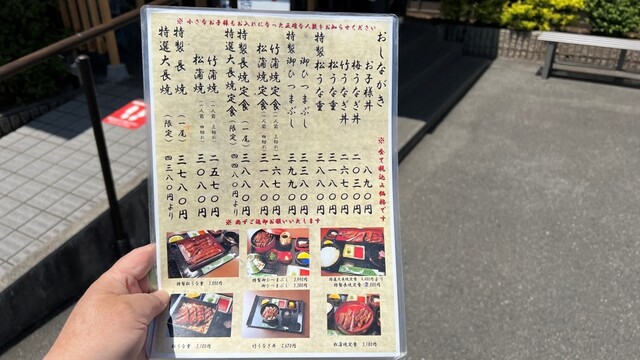 ※小さなお子様もお入れになった正確な人数をお知らせください
おしながき
※全て税込み価格です
お子様丼 八九〇円
梅うなぎ丼 二〇三〇円
竹うなぎ丼 二六七〇円
松うな重 三一八〇円
特製松うな重 三八八〇円
御ひつまぶし 三三八〇円
特製御ひつまぶし 三九九〇円
竹蒲焼定食 二六七〇円
松蒲焼定食 三一八〇円
特製長焼定食(一尾) 三八八〇円
特選大長焼定食(限定) 四四八〇円より
竹蒲焼 二五七〇円
松蒲焼 三〇八〇円
特製長焼(一尾) 三七八〇円
特選大長焼(限定) 四三八〇円より
特製松うな重
特製御ひつまぶし
御ひつまぶし
特選大長焼定食
特製長焼定食
松うな重 3,180円
竹うなぎ丼 2,670円
松蒲焼定食 3,180円